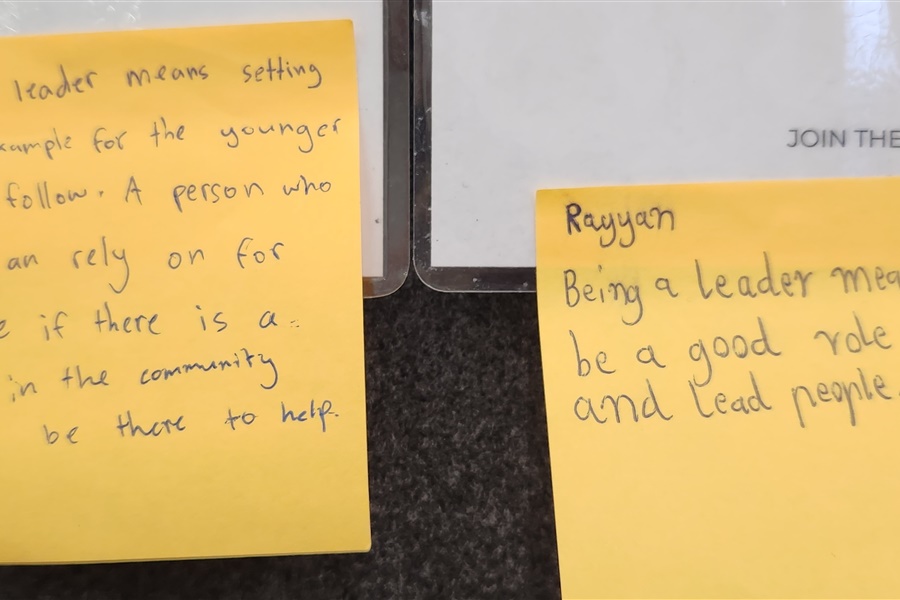 leader means setting
xample for the younger
follow. A person who
an rely on for
e if there is a
in the community
be there to help.
JOIN THE
Rayyan
Being a leader mea
be a good role
and lead people.